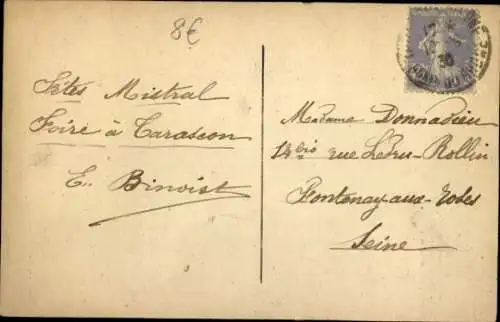 8€
Fêtes Mistral
Foire à Tarascon
E. Binoist
Madame Donnadieu
bis rue Ledru-Rollin
Fontenay-aux-Roses
Seine
30